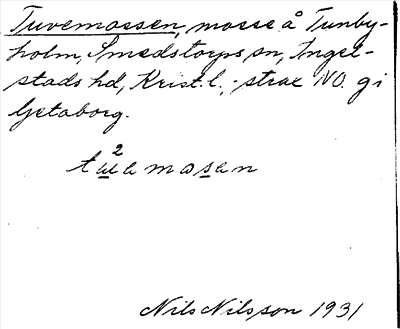 Tuvemossen, mosse å Tunby-
holm, Smedstorps sn, Ingel-
stads hd, Krist. l., - strax NO. gi
Getaborg.
2
tuvamosen
Nils Nilsson 1931